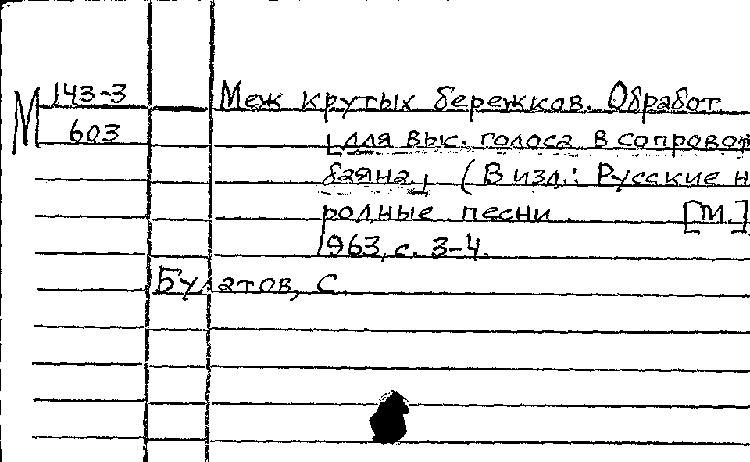 М 143-3 Меж крутых бережков. Обработ
603 [для выс. голоса в сопровож
баяна] (В изд.: Русские н
родные песни [М.]
1963, с. 3-4.
Булатов, С.